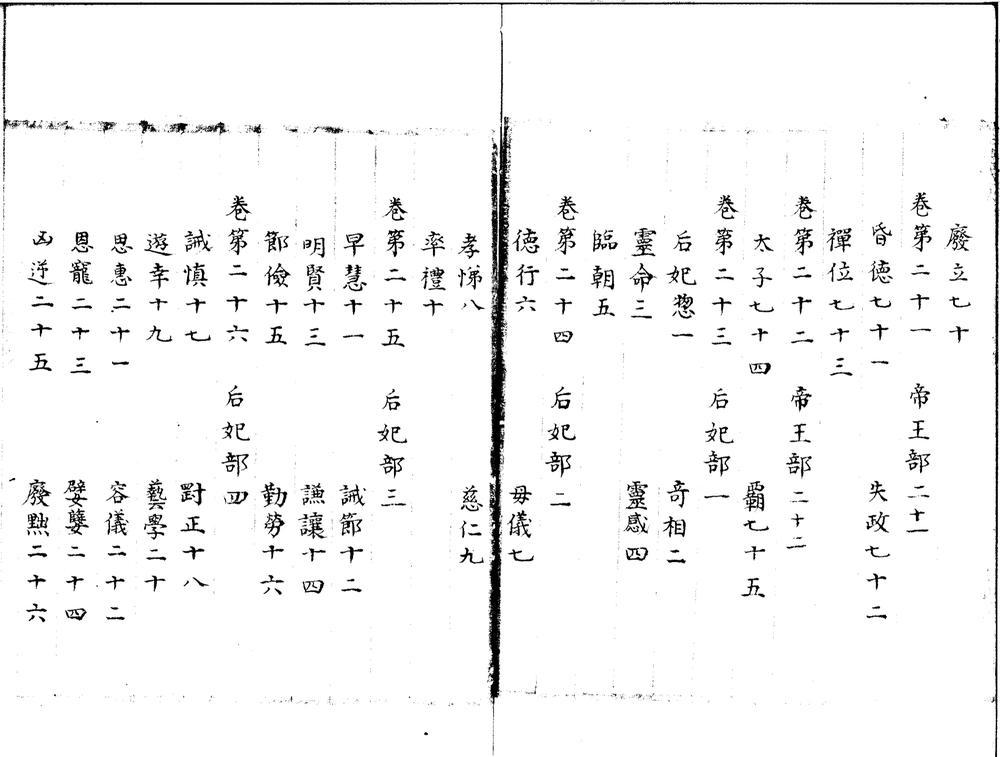 廢立七十
卷第二十一 帝王部二十一
昏德七十一 失政七十二
禪位七十三
卷第二十二 帝王部二十二
太子七十四 霸七十五
卷第二十三 后妃部一
后妃惣一 竒相二
靈命三 靈感四
臨朝五
卷第二十四 后妃部二
德行六 母儀七
孝悌八 慈仁九
率禮十
卷第二十五 后妃部三
早慧十一 誠節十二
明賢十三 謙讓十四
節儉十五 勤勞十六
卷第二十六 后妃部四
誡慎十七 對正十八
遊幸十九 藝學二十
思惠二十一 容儀二十二
恩寵二十三 嬖孽二十四
凶逆二十五 廢黜二十六